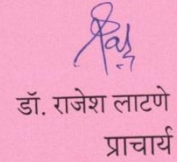 डॉ. राजेश लाटणे
प्राचार्य